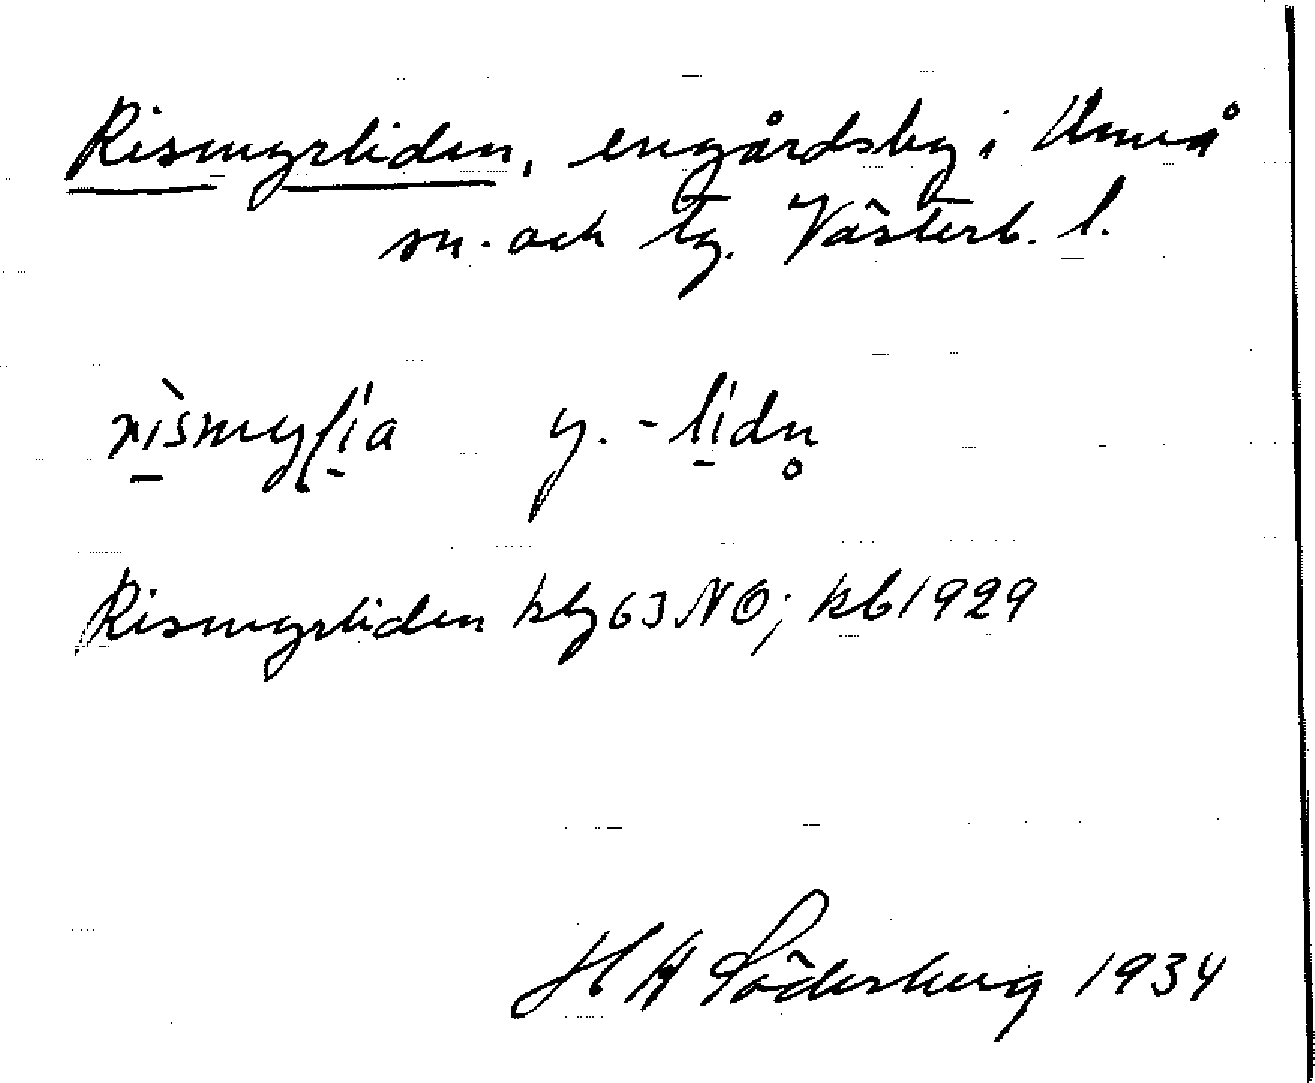 Rismyrliden, engårdsby i Umeå
sn. och tg. Västerb. l.
rı̀smyſia y. -lidn̥
Rismyrliden kbg 63 NO; kb 1929
H A Söderberg 1934